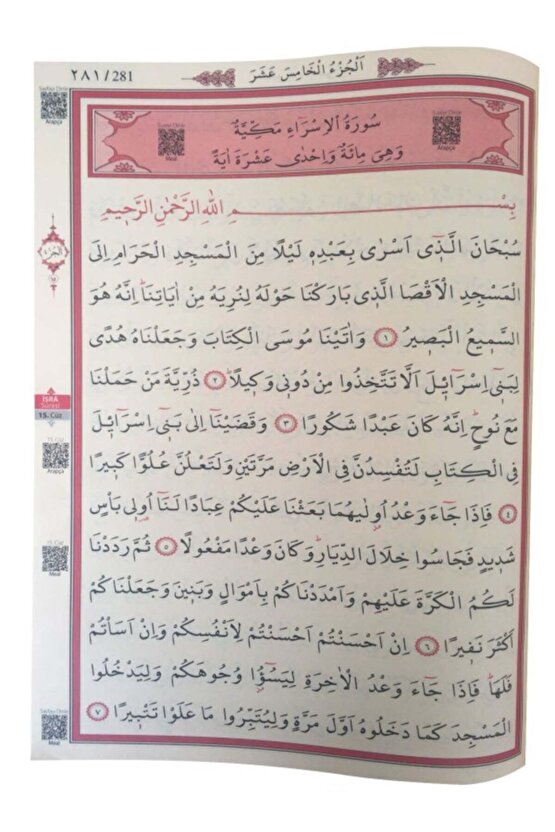 ٢٨١/281
اَلْجُزْءُ الْخَامِسَ عَشَرَ
سُورَةُ الْاِسْرَاءِ مَكِّيَّةٌ
وَهِيَ مِائَةٌ وَاِحْدٰى عَشْرَةَ اٰيَةً
بِسْمِ اللّٰهِ الرَّحْمٰنِ الرَّحٖيمِ
سُبْحَانَ الَّذٖٓى اَسْرٰى بِعَبْدِهٖ لَيْلًا مِنَ الْمَسْجِدِ الْحَرَامِ اِلَى
الْمَسْجِدِ الْاَقْصَا الَّذٖى بَارَكْنَا حَوْلَهُ لِنُرِيَهُ مِنْ اٰيَاتِنَاۜ اِنَّهُ هُوَ
السَّمٖيعُ الْبَصٖيرُ ١ وَاٰتَيْنَا مُوسَى الْكِتَابَ وَجَعَلْنَاهُ هُدًى
لِبَنٖٓى اِسْرَٓائٖلَ اَلَّا تَتَّخِذُوا مِنْ دُونٖى وَكٖيلًاۜ ٢ ذُرِّيَّةَ مَنْ حَمَلْنَا
مَعَ نُوحٍۜ اِنَّهُ كَانَ عَبْدًا شَكُورًا ٣ وَقَضَيْنَٓا اِلٰى بَنٖٓى اِسْرَٓائٖلَ
فِى الْكِتَابِ لَتُفْسِدُنَّ فِى الْاَرْضِ مَرَّتَيْنِ وَلَتَعْلُنَّ عُلُوًّا كَبٖيرًا
٤ فَاِذَا جَٓاءَ وَعْدُ اُو۫لٰيهُمَا بَعَثْنَا عَلَيْكُمْ عِبَادًا لَنَٓا اُو۬لٖى بَأْسٍ
شَدٖيدٍ فَجَاسُوا خِلَالَ الدِّيَارِۜ وَكَانَ وَعْدًا مَفْعُولًا ٥ ثُمَّ رَدَدْنَا
لَكُمُ الْكَرَّةَ عَلَيْهِمْ وَاَمْدَدْنَاكُمْ بِاَمْوَالٍ وَبَنٖينَ وَجَعَلْنَاكُمْ
اَكْثَرَ نَفٖيرًا ٦ اِنْ اَحْسَنْتُمْ اَحْسَنْتُمْ لِاَنْفُسِكُمْ وَاِنْ اَسَأْتُمْ
فَلَهَاۜ فَاِذَا جَٓاءَ وَعْدُ الْاٰخِرَةِ لِيَسُٓؤُ۫ا وُجُوهَكُمْ وَلِيَدْخُلُوا
الْمَسْجِدَ كَمَا دَخَلُوهُ اَوَّلَ مَرَّةٍ وَلِيُتَبِّرُوا مَا عَلَوْا تَتْبٖيرًا ٧
Sureyi Dinle
Meal
Sayfayı Dinle
Arapça
الْجُزْء
١٥
İSRÂ
Sûresi
15. Cüz
15. Cüz
Arapça
15. Cüz
Meal
Sayfayı Dinle
Meal